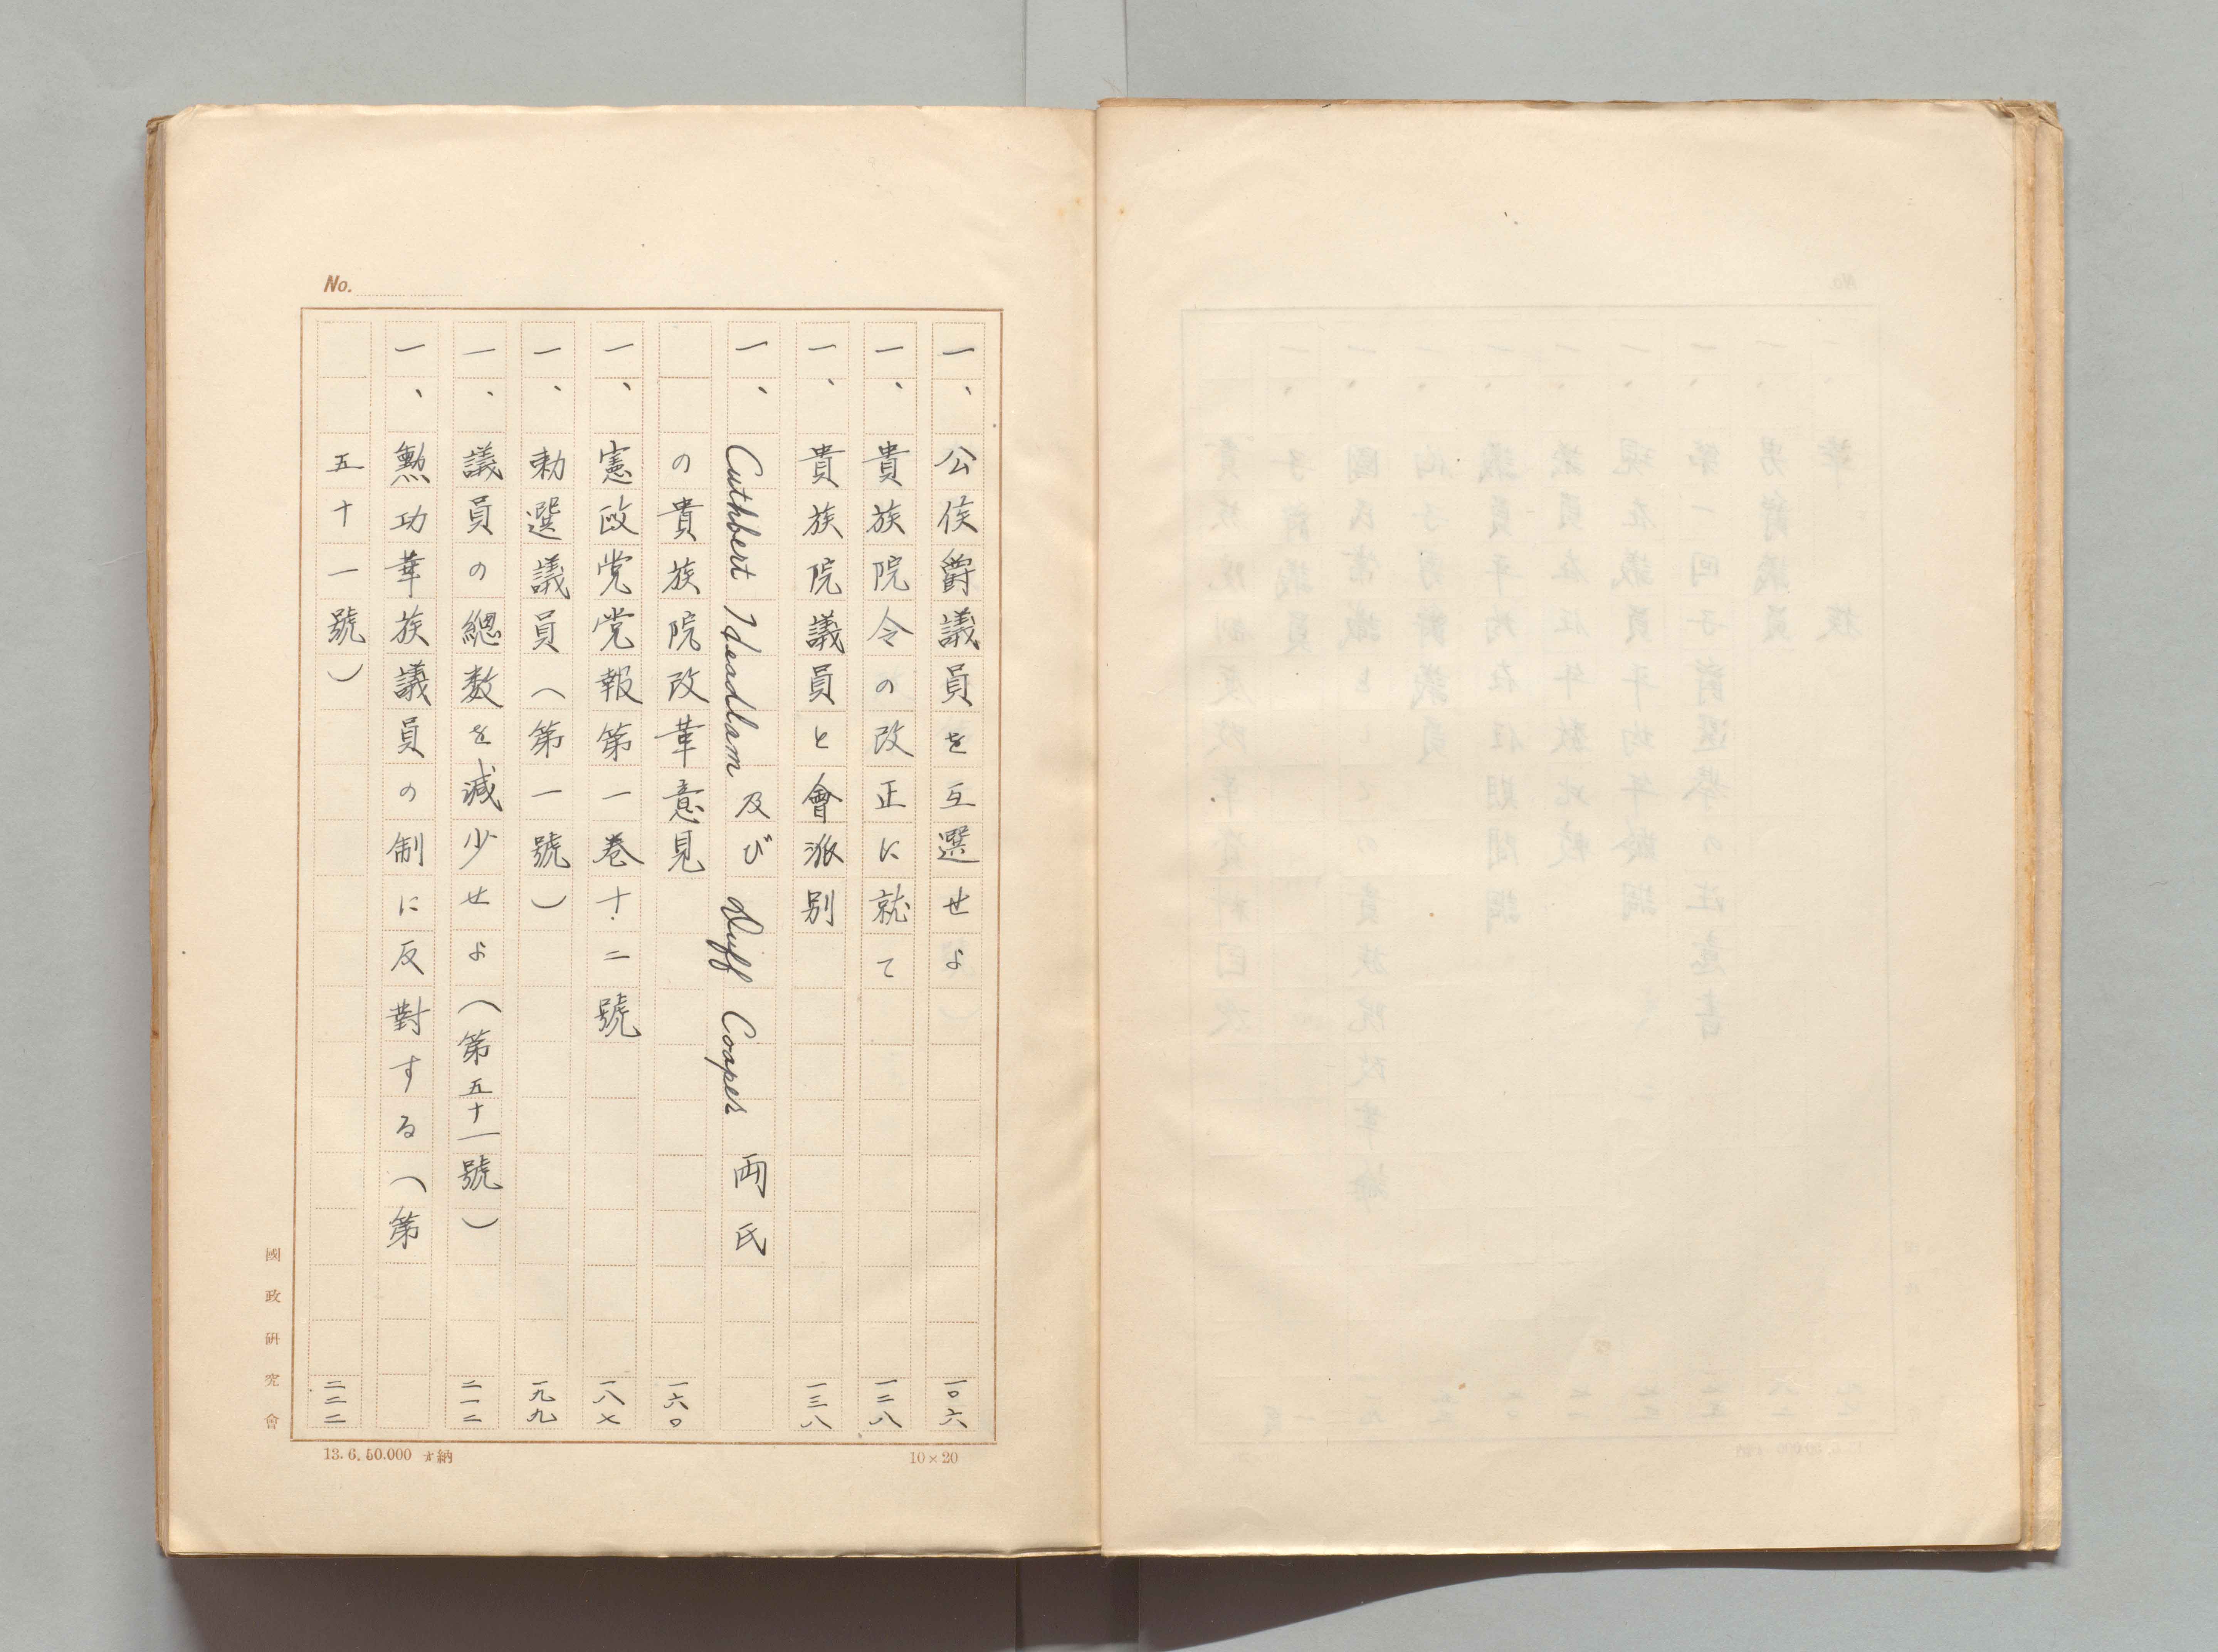 No.
一、公侯爵議員を互選せよ 一〇六
一、貴族院令の改正に就て 一二八
一、貴族院議員と會派別 一三八
一、Cuthbert Headlam 及び Duff Cooper 両氏
の貴族院改革意見 一六〇
一、憲政党党報第一巻十二號 一八七
一、勅選議員（第一號） 一九九
一、議員の總数を減少せよ（第五十一號） 二一二
一、勲功華族議員の制に反對する（第
五十一號） 二二二
國政研究會
10×20
13.6.50.000 ォ納